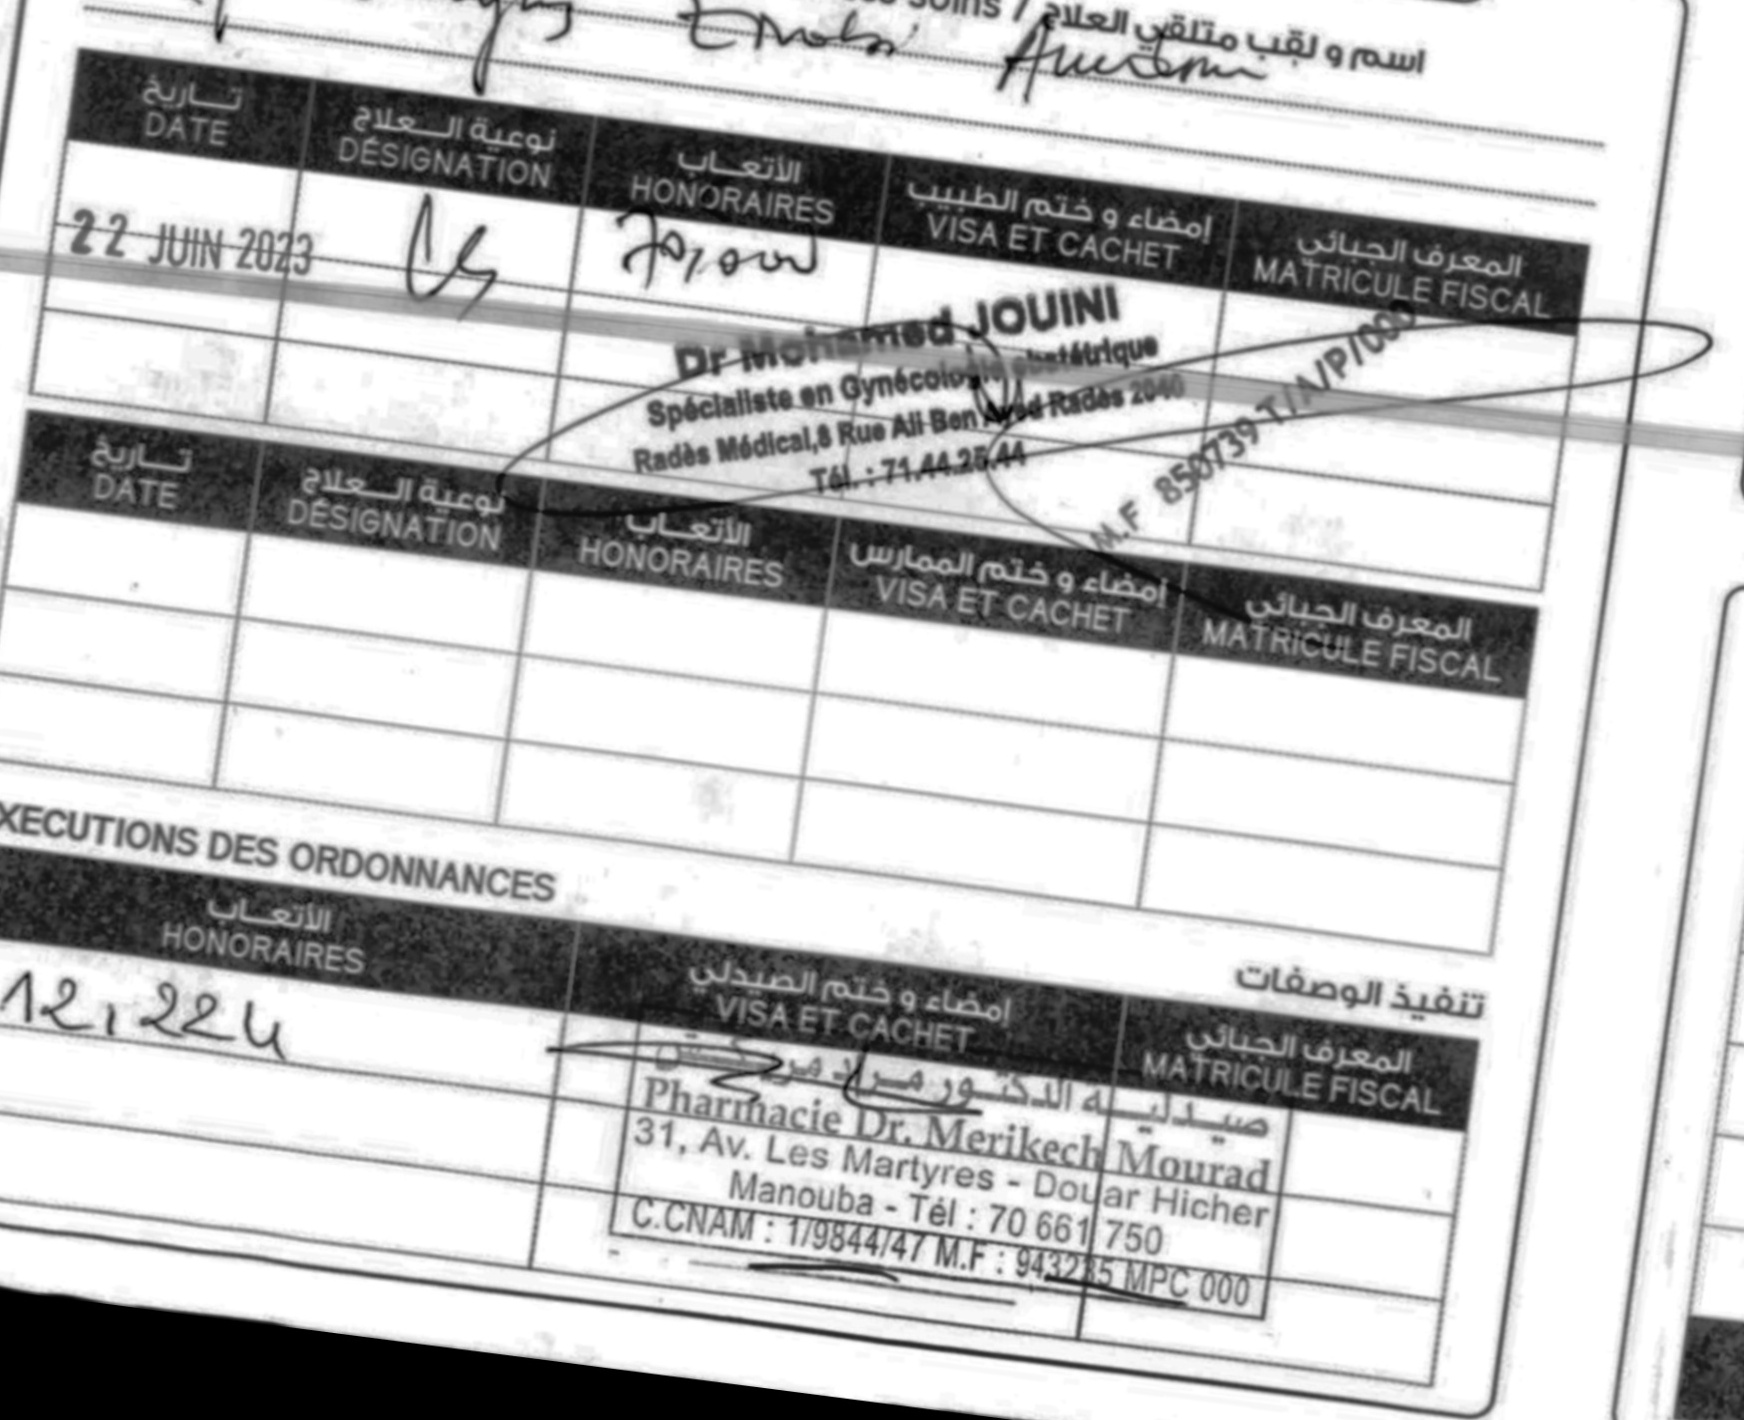 soins / اسم و لقب متلقي العلاج
تـــاريخ
DATE
نوعية الـــعلاج
DÉSIGNATION
الأتعـــاب
HONORAIRES
إمضاء و ختم الطبيب
VISA ET CACHET
المعرف الجبائي
MATRICULE FISCAL
22 JUIN 2023
Dr Mohamed JOUINI
Spécialiste en Gynécologie obstétrique
Radès Médical,8 Rue Ali Ben Radès 2040
Tél. : 71.44.25.44
M.F 850739 T/A/P/000
تـــاريخ
DATE
نوعية الـــعلاج
DÉSIGNATION
الأتعـــاب
HONORAIRES
إمضاء و ختم الممارس
VISA ET CACHET
المعرف الجبائي
MATRICULE FISCAL
XECUTIONS DES ORDONNANCES
تنفيذ الوصفات
الأتعـــاب
HONORAIRES
إمضاء و ختم الصيدلي
VISA ET CACHET
المعرف الجبائي
MATRICULE FISCAL
12,224
صيدليـــة الدكتـــور مـــراد
Pharmacie Dr. Merikech Mourad
31, Av. Les Martyres - Douar Hicher
Manouba - Tél : 70 661 750
C.CNAM : 1/9844/47 M.F : 943235 MPC 000